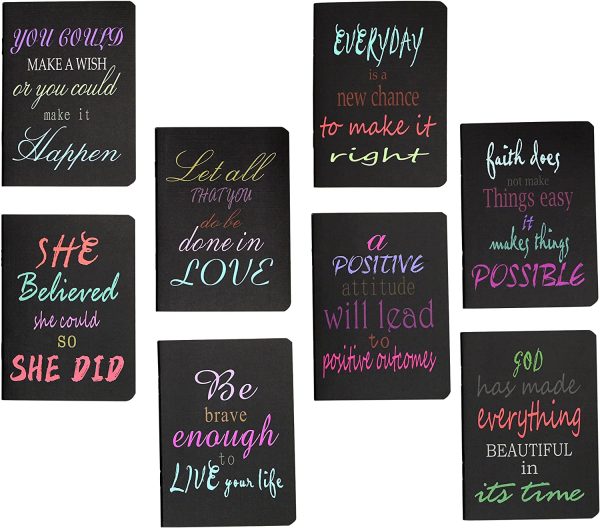 YOU COULD
MAKE A WISH
or you could
make it
Happen
Let all
THAT YOU
do be
done in
LOVE
EVERYDAY
is a
new chance
to make it
right
faith does
not make
Things easy
it
makes things
POSSIBLE
SHE
Believed
she could
so
SHE DID
Be
brave
enough
to
LIVE your life
a
POSITIVE
attitude
will lead
to
positive outcomes
GOD
has made
everything
BEAUTIFUL
in
its time